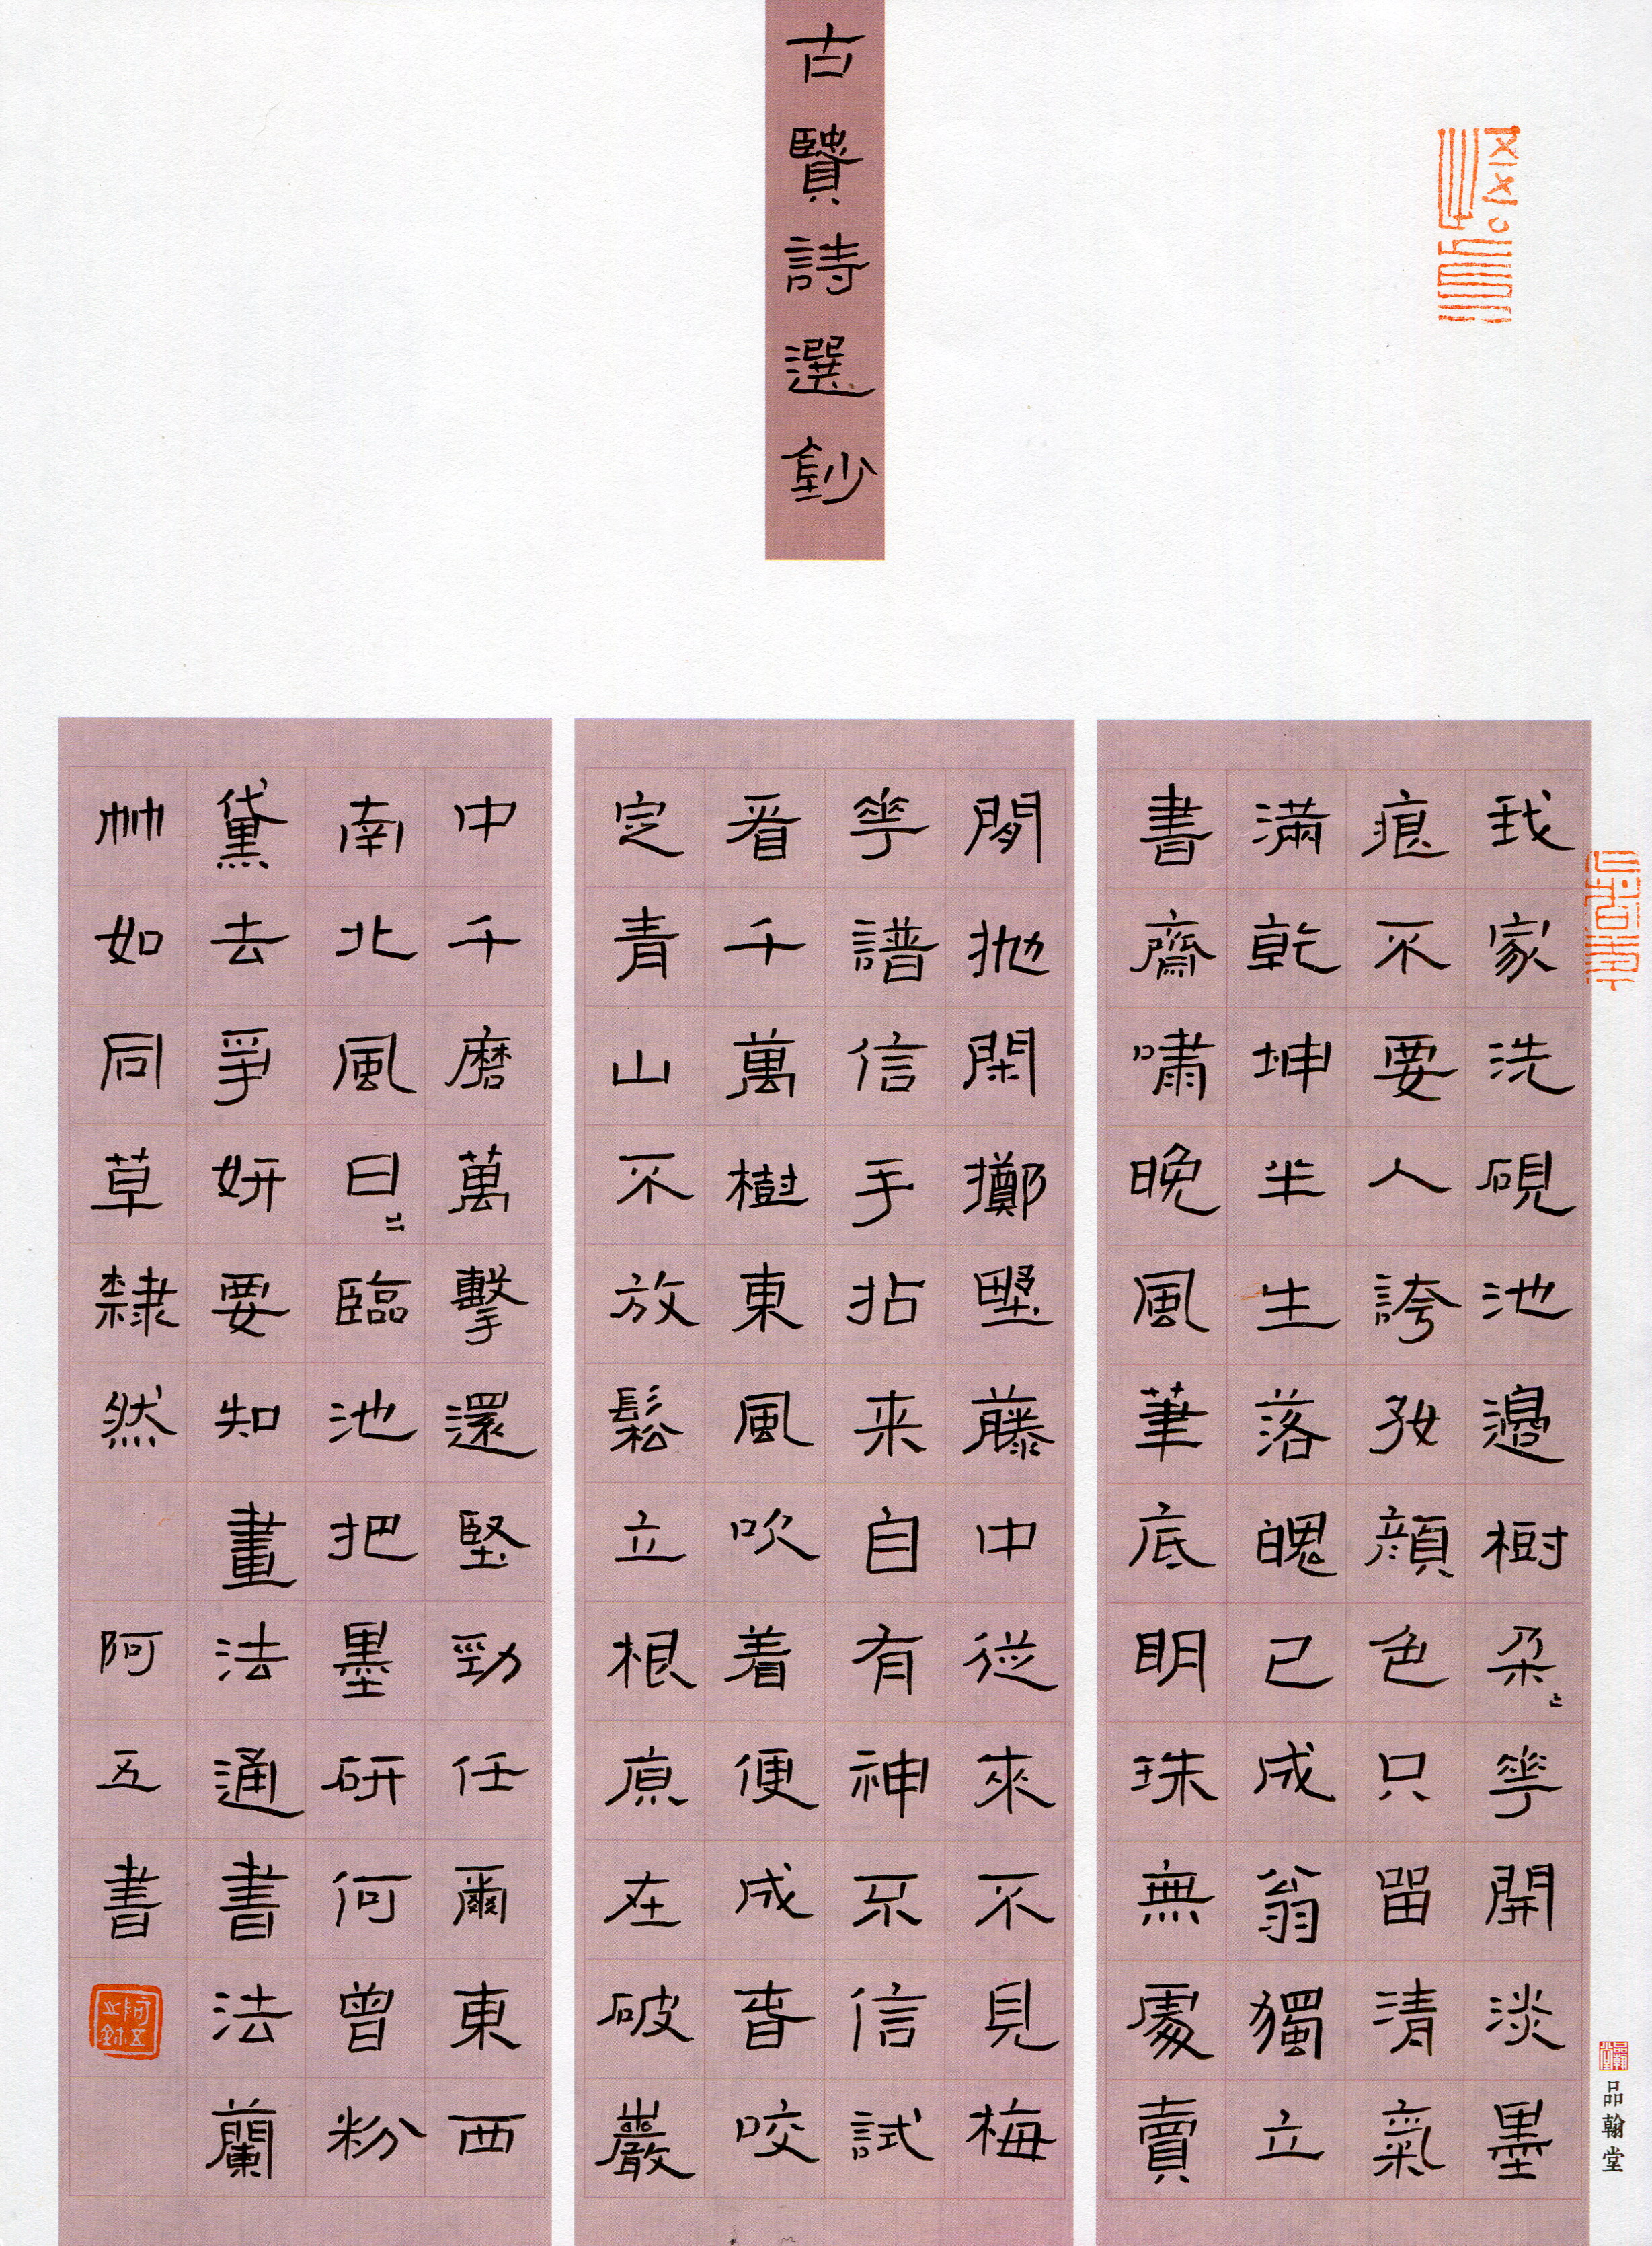 古賢詩選鈔
我家洗硯池邊樹朵〻花開淡墨
痕不要人誇好顔色只留清氣
滿乾坤半生落魄已成翁獨立
書齋嘯晚風筆底明珠無處賣
閒拋閑擲野藤中從來不見梅
花譜信手拈来自有神不信試
看千萬樹東風吹着便成春咬
定青山不放鬆立根原在破巖
中千磨萬擊還堅勁任爾東西
南北風日〻臨池把墨研何曾粉
黛去爭妍要知畫法通書法蘭
竹如同草隸然 阿五書
品翰堂